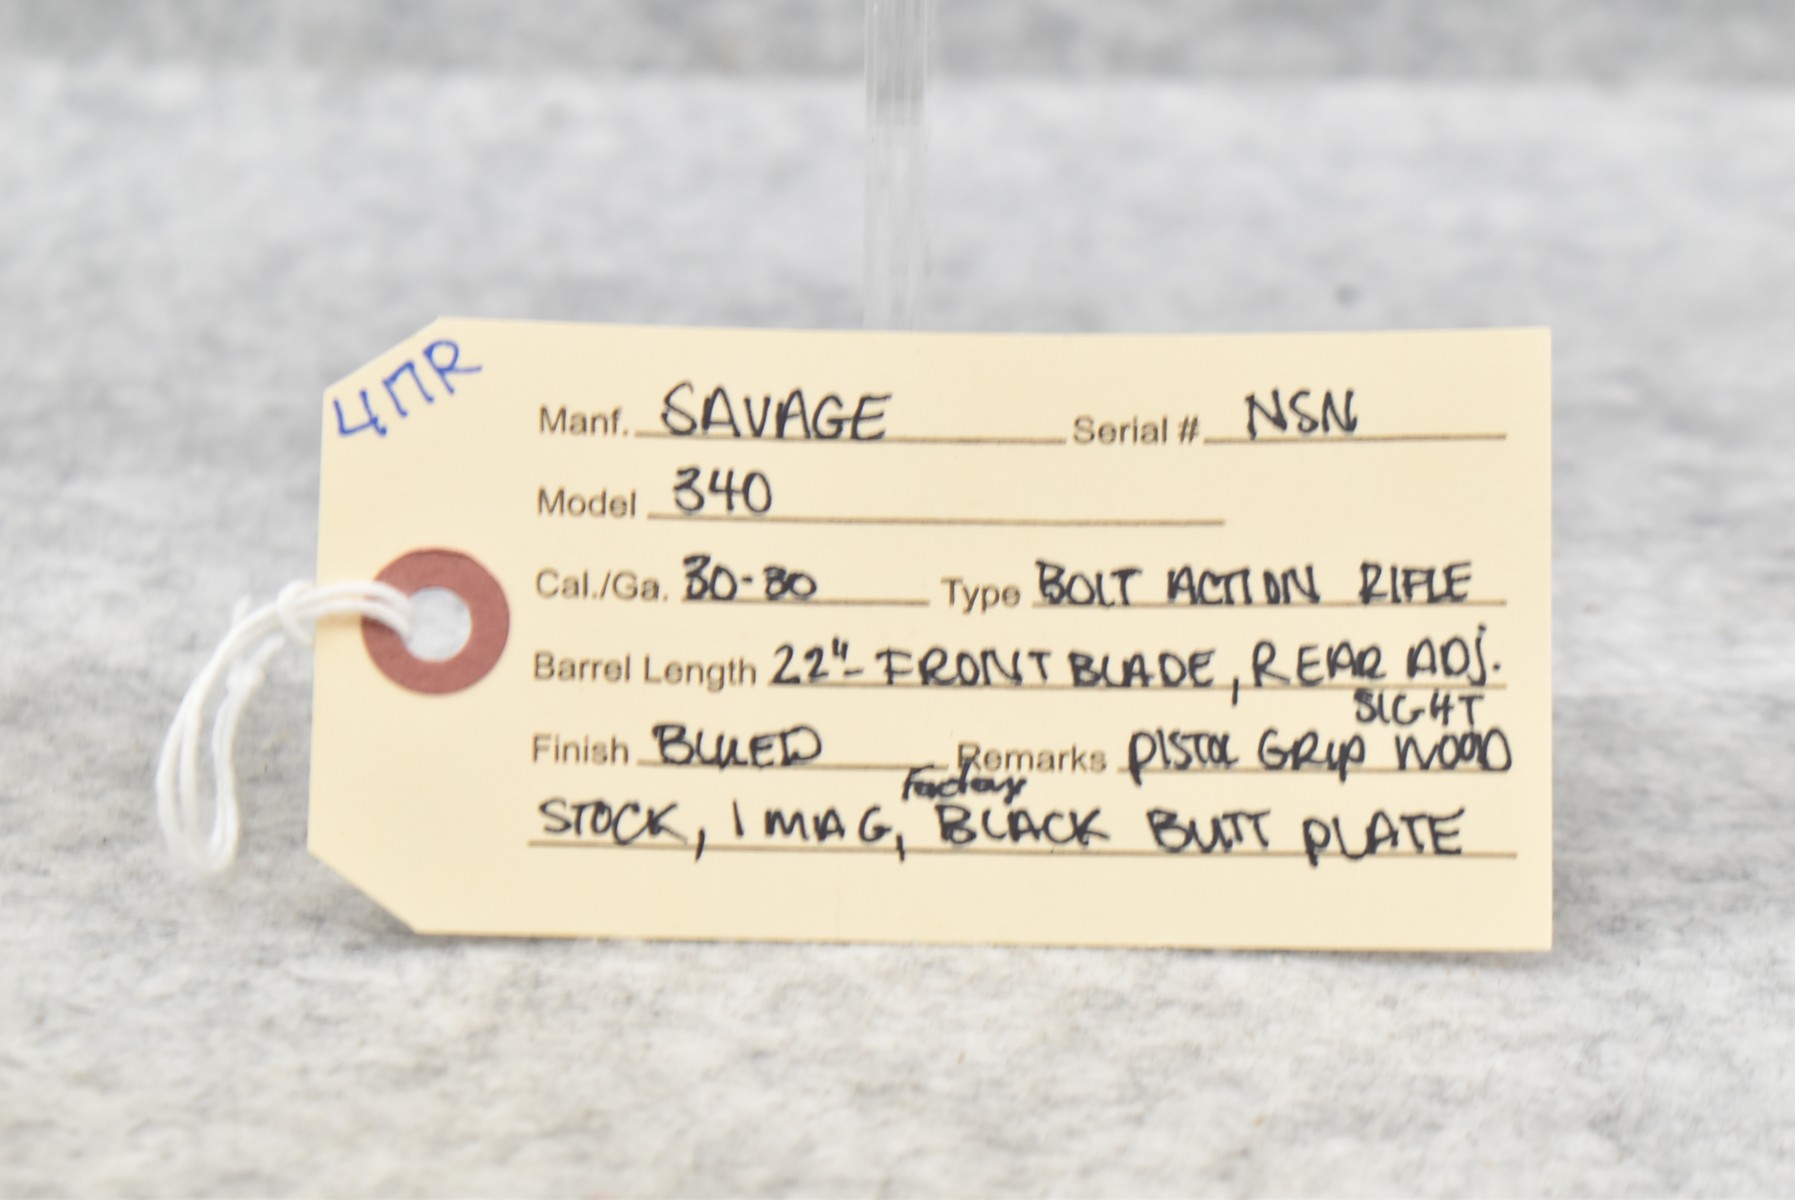 4MR
Manf. SAVAGE Serial # NSN
Model 340
Cal./Ga. 30-30 Type BOLT ACTION RIFLE
Barrel Length 22"- FRONT BLADE, REAR ADJ.
SIGHT
Finish BLUED Remarks PISTOL GRIP WOOD
Factory
STOCK, 1 MAG, BLACK BUTT PLATE